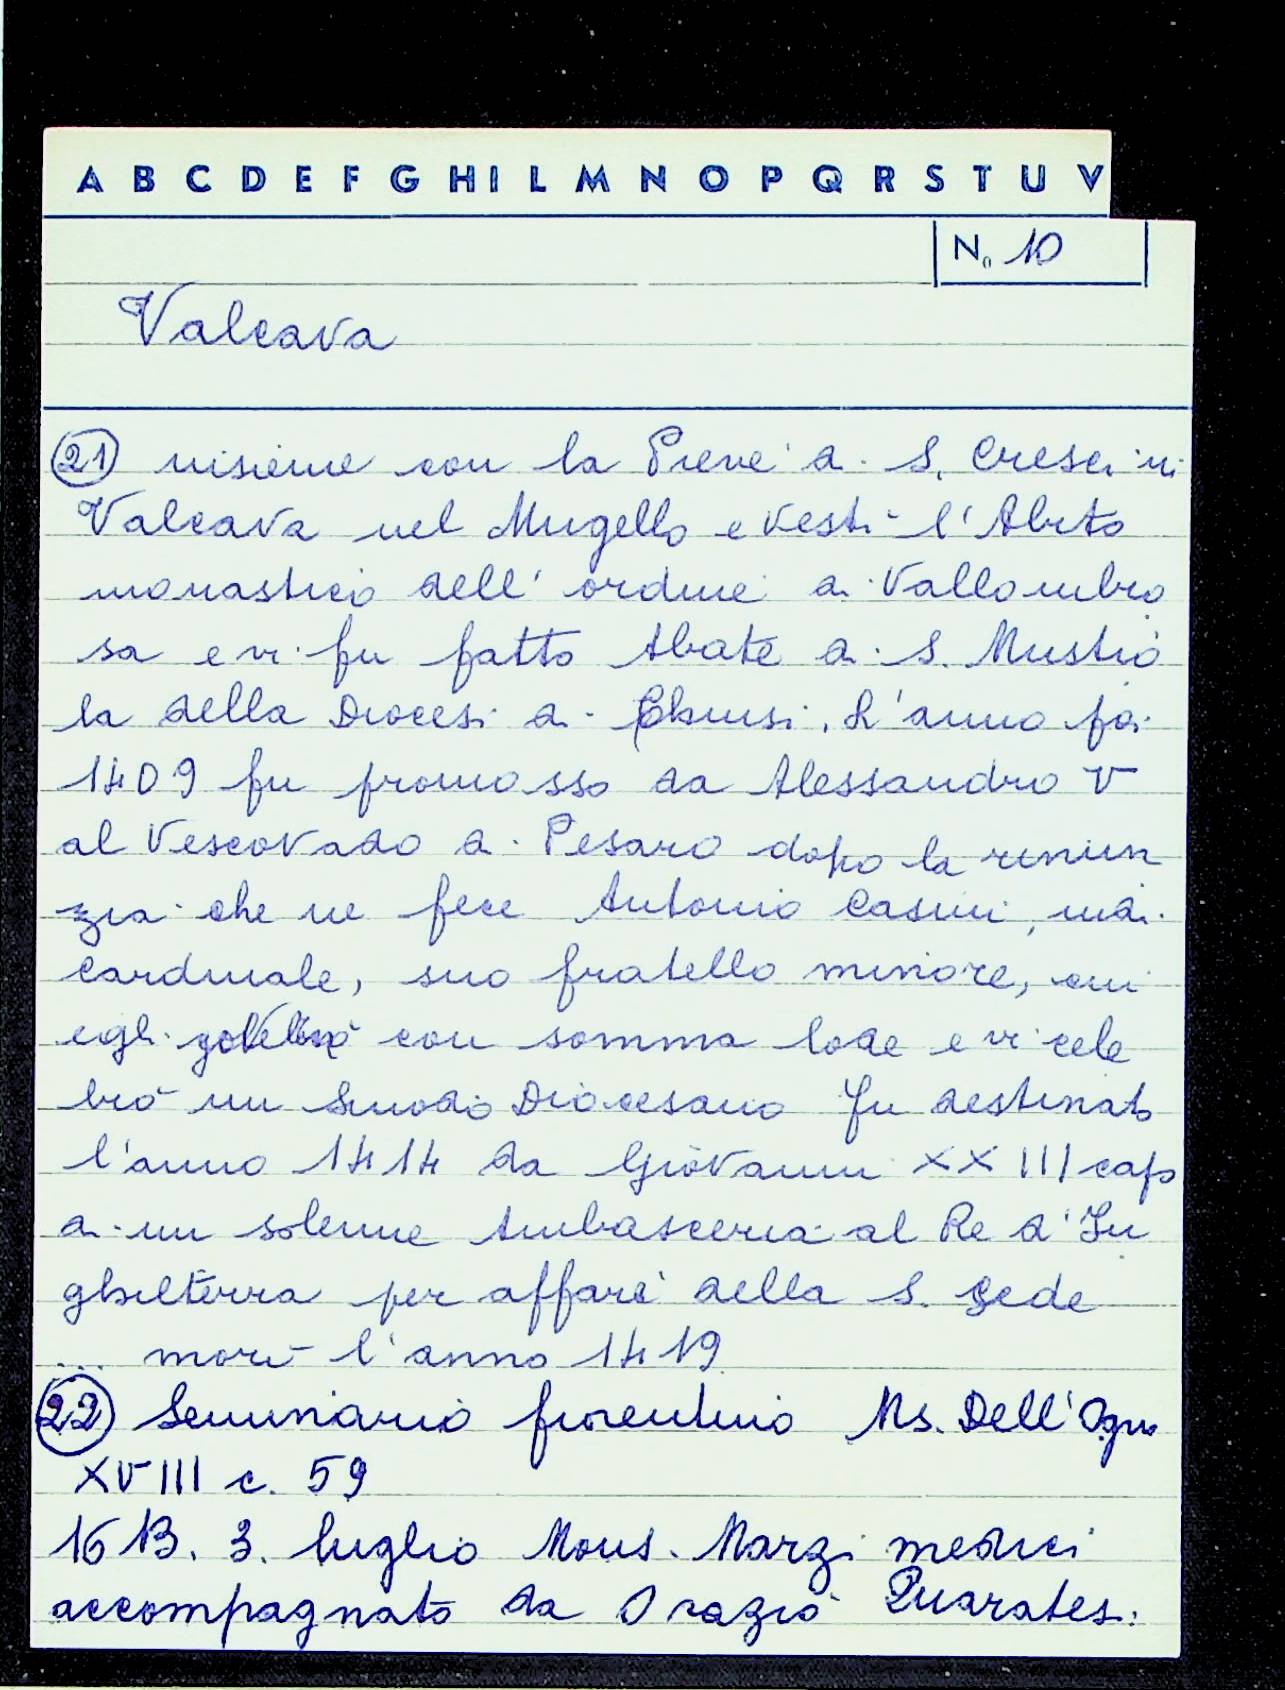 A B C D E F G H I L M N O P Q R S T U V
No 10
Valcava
21 insieme con la Pieve di S. Cresci in
Valcava nel Mugello e vestì l'Abito
monastico dell' ordine di Vallombro
sa e vi fu fatto Abate di S. Mustio
la della Diocesi di Chiusi. L'anno poi
1409 fu promosso da Alessandro V
al Vescovado di Pesaro dopo la renun
zia che ne fece Antonio Casini, indi
Cardinale, suo fratello minore, cui
egli con somma lode e vi cele
brò un Sinodo Diocesano Fu destinato
l'anno 1414 da Giovanni XXIII capo
di un solenne Ambasceria al Re d'In
ghilterra per affari della S. Sede
... morì l'anno 1419
22 Seminario fiorentino Ms. Dell'Ogna
XVIII c. 59
1613. 3. luglio Mons. Marzi medici
accompagnato da Orazio Quaratesi